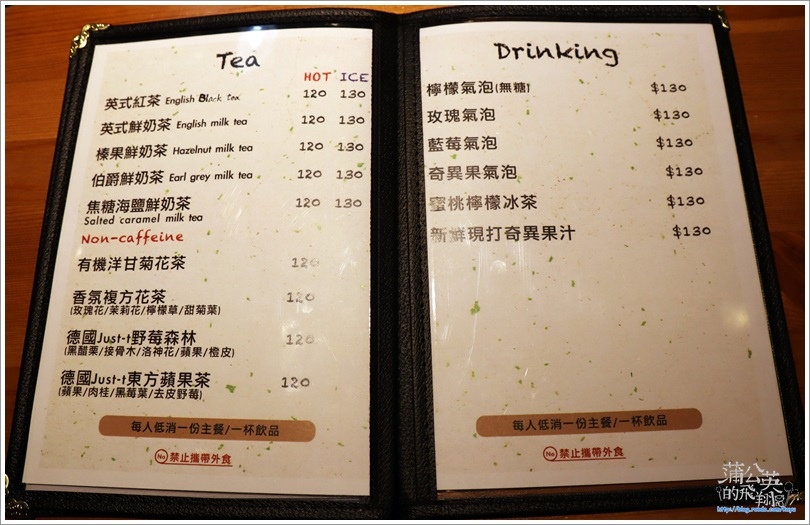 Tea
HOT ICE
英式紅茶 English Black tea 120 130
英式鮮奶茶 English milk tea 120 130
榛果鮮奶茶 Hazelnut milk tea 120 130
伯爵鮮奶茶 Earl grey milk tea 120 130
焦糖海鹽鮮奶茶 120 130
Salted caramel milk tea
Non-caffeine
有機洋甘菊花茶 120
香氛複方花茶 120
(玫瑰花/茉莉花/檸檬草/甜菊葉)
德國Just-t野莓森林 120
(黑醋栗/接骨木/洛神花/蘋果/橙皮)
德國Just-t東方蘋果茶 120
(蘋果/肉桂/黑莓葉/去皮野莓)
每人低消一份主餐/一杯飲品
No 禁止攜帶外食
Drinking
檸檬氣泡(無糖) $130
玫瑰氣泡 $130
藍莓氣泡 $130
奇異果氣泡 $130
蜜桃檸檬冰茶 $130
新鮮現打奇異果汁 $130
每人低消一份主餐/一杯飲品
No 禁止攜帶外食
蒲公英
的飛翔